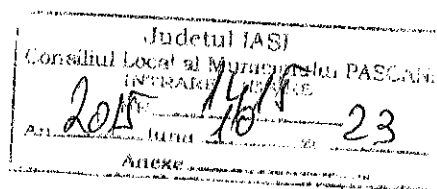 Judetul IAȘI
Consiliul Local al Municipiului PASCANI
INTRARE / IEȘIRE
Nr. 1415
An 2015 luna 10 zi 23
Anexe